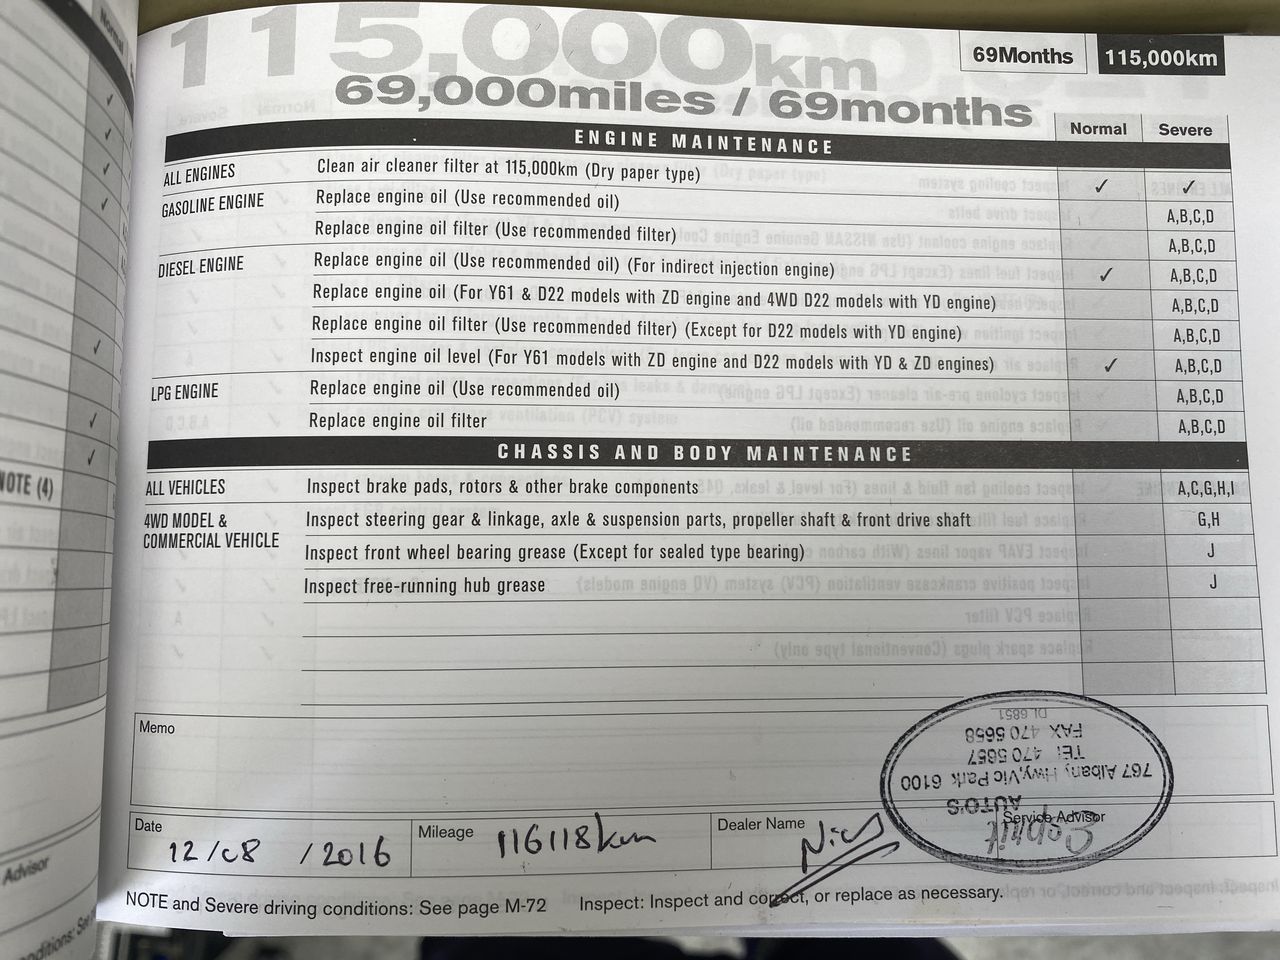 115,000km
69,000miles / 69months
69Months 115,000km
Normal Severe
ENGINE MAINTENANCE
ALL ENGINES Clean air cleaner filter at 115,000km (Dry paper type) ✓ ✓
GASOLINE ENGINE Replace engine oil (Use recommended oil) A,B,C,D
Replace engine oil filter (Use recommended filter) A,B,C,D
DIESEL ENGINE Replace engine oil (Use recommended oil) (For indirect injection engine) ✓ A,B,C,D
Replace engine oil (For Y61 & D22 models with ZD engine and 4WD D22 models with YD engine) A,B,C,D
Replace engine oil filter (Use recommended filter) (Except for D22 models with YD engine) A,B,C,D
Inspect engine oil level (For Y61 models with ZD engine and D22 models with YD & ZD engines) ✓ A,B,C,D
LPG ENGINE Replace engine oil (Use recommended oil) A,B,C,D
Replace engine oil filter A,B,C,D
CHASSIS AND BODY MAINTENANCE
ALL VEHICLES Inspect brake pads, rotors & other brake components A,C,G,H,I
4WD MODEL & COMMERCIAL VEHICLE Inspect steering gear & linkage, axle & suspension parts, propeller shaft & front drive shaft G,H
Inspect front wheel bearing grease (Except for sealed type bearing) J
Inspect free-running hub grease J
Memo
Date 12/08/2016
Mileage 116118km
Dealer Name
Service Advisor
Esprit
AUTO'S
767 Albany Hwy, Vic Park 6100
TEL 470 5657
FAX 470 5658
DL 6851
NOTE and Severe driving conditions: See page M-72 Inspect: Inspect and correct, or replace as necessary.
Normal
NOTE (4)
Advisor